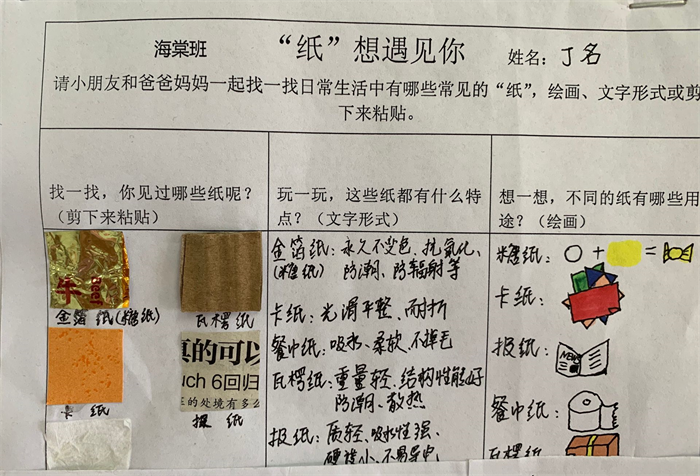 海棠班
“纸”想遇见你
姓名：丁名
请小朋友和爸爸妈妈一起找一找日常生活中有哪些常见的“纸”，绘画、文字形式或剪
下来粘贴。
找一找，你见过哪些纸呢？
（剪下来粘贴）
金箔纸(糖纸)
瓦楞纸
真的可以
uch 6回归
的处境有多么
卡纸
报纸
玩一玩，这些纸都有什么特
点？（文字形式）
金箔纸：永久不变色、抗氧化、
(糖纸) 防潮、防辐射等
卡纸：光滑平整、耐折
餐巾纸：吸水、柔软、不掉毛
瓦楞纸：重量轻、结构性能好
防潮、散热
报纸：质轻、吸水性强、
硬挺小、不易导电
想一想，不同的纸有哪些用
途？（绘画）
糖纸：
+
=
卡纸：
报纸：
NEWS
餐巾纸：
瓦楞纸